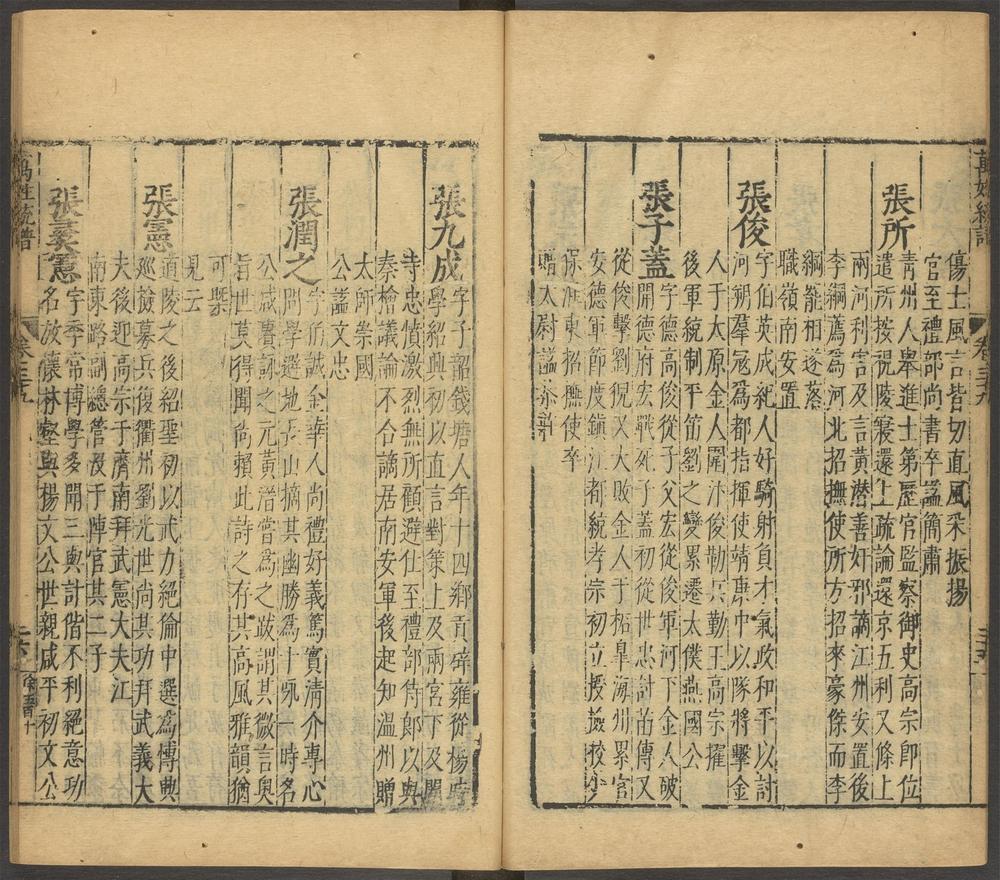 萬姓統譜
卷三十九
三十五
傷士風言皆切直風采振揚
官至禮部尚書卒謚簡肅
張所
青州人舉進士第歷官監察御史高宗即位
遣所按視陵寢還上疏論還京五利又條上
兩河利害及言黃潛善奸邪謫江州安置後
李綱薦爲河北招撫使所方招來豪傑而李
綱罷相遂落
職嶺南安置
張俊
字伯英成紀人好騎射負才氣政和平以討
河朔羣寇爲都指揮使靖康中以隊將擊金
人于太原金人圍汴俊勒兵勤王高宗擢
後軍統制平苗劉之變累遷太僕燕國公
張子蓋
字德高俊從子父宏從俊軍河下金人破
開德府宏戰死子蓋初從世忠討苗傅又
從俊擊劉猊又大敗金人于拓臯海州累官
安德軍節度鎮江都統孝宗初立授檢校少
保淮東招撫使卒
贈太尉謚恭
張九成
字子韶錢塘人年十四鄉貢辟雍從楊
學紹興初以直言對策上及兩宮下及閹
寺忠憤激烈無所顧避仕至禮部侍郎以與
秦檜議論不合謫居南安軍後起知溫州贈
太師崇國
公謚文忠
張潤之
字伯誠金華人尚禮好義篤實清介專心
問學選地長山摘其幽勝爲十詠一時名
公咸賡詠之元黃溍嘗爲之跋謂其微言奧
旨世莫得聞尚賴此詩之存其高風雅韻猶
可槩
見云
張憲
道陵之後紹聖初以武力絕倫中選爲博典
巡檢募兵復衢州劉光世尚其功拜武義大
夫後迎高宗于濟南拜武憲大夫江
南東路副總管沒于陣官其二子
張彞憲
字季常博學多聞三與計偕不利絕意功
名放懷林壑與楊文公世親咸平初文公
萬姓統譜
卷三十九
三十六